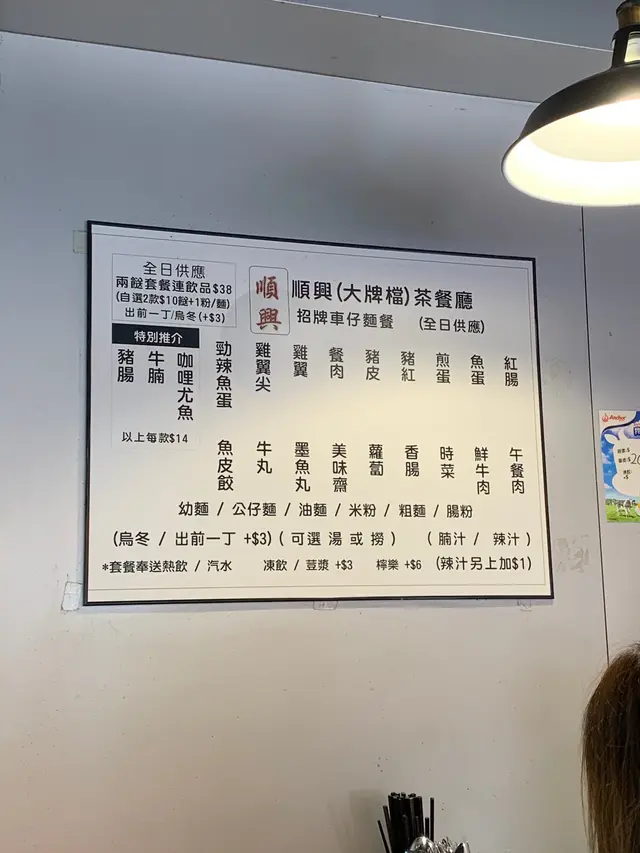 全日供應
兩餸套餐連飲品$38
(自選2款$10餸+1粉/麵)
出前一丁/烏冬(+$3)
順興
順興(大牌檔)茶餐廳
招牌車仔麵餐 (全日供應)
特別推介
豬腸
牛腩
咖哩尤魚
以上每款$14
勁辣魚蛋
雞翼尖
雞翼
餐肉
豬皮
豬紅
煎蛋
魚蛋
紅腸
魚皮餃
牛丸
墨魚丸
美味齋
蘿蔔
香腸
時菜
鮮牛肉
午餐肉
幼麵 / 公仔麵 / 油麵 / 米粉 / 粗麵 / 腸粉
(烏冬 / 出前一丁 +$3) ( 可選 湯 或 撈 ) ( 腩汁 / 辣汁 )
*套餐奉送熱飲 / 汽水 凍飲 / 荳漿 +$3 檸樂 +$6 (辣汁另上加$1)
Anchor